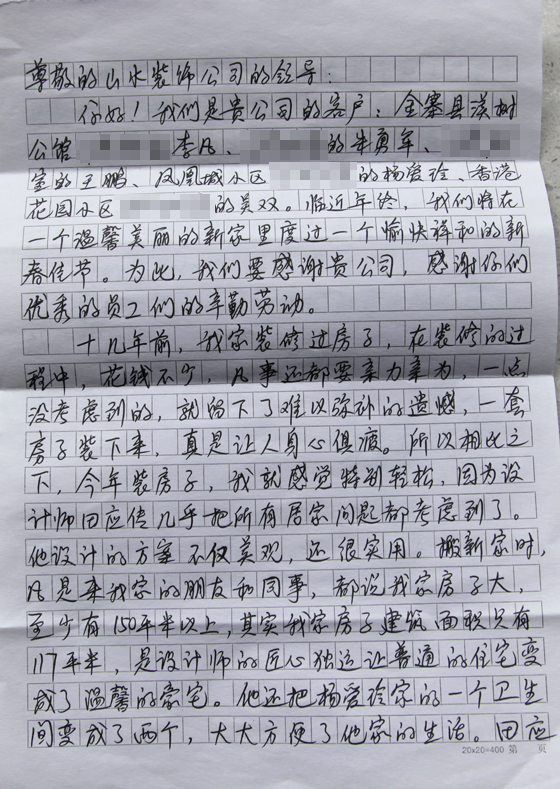 尊敬的山水装饰公司的领导：
你好！我们是贵公司的客户：金寨县漢樹
公馆 李凡、 的朱勇军、
室的王鹏、凤凰城小区 的杨爱玲、香港
花园小区 的吴双。临近年终，我们将在
一个温馨美丽的新家里度过一个愉快祥和的新
春佳节。为此，我们要感谢贵公司，感谢你们
优秀的员工们的辛勤劳动。
十几年前，我家装修过房子，在装修的过
程中，花钱不少，凡事还都要亲力亲为，一点
没考虑到的，就留下了难以弥补的遗憾，一套
房子装下来，真是让人身心俱疲。所以相比之
下，今年装房子，我就感觉特别轻松，因为设
计师田应传几乎把所有居家问题都考虑到了。
他设计的方案不仅美观，还很实用。搬新家时，
凡是来我家的朋友和同事，都说我家房子大，
至少有150平米以上，其实我家房子建筑面积只有
117平米，是设计师的匠心独运让普通的住宅变
成了温馨的豪宅。他还把杨爱玲家的一个卫生
间变成了两个，大大方便了他家的生活。田应
20×20=400 第 页